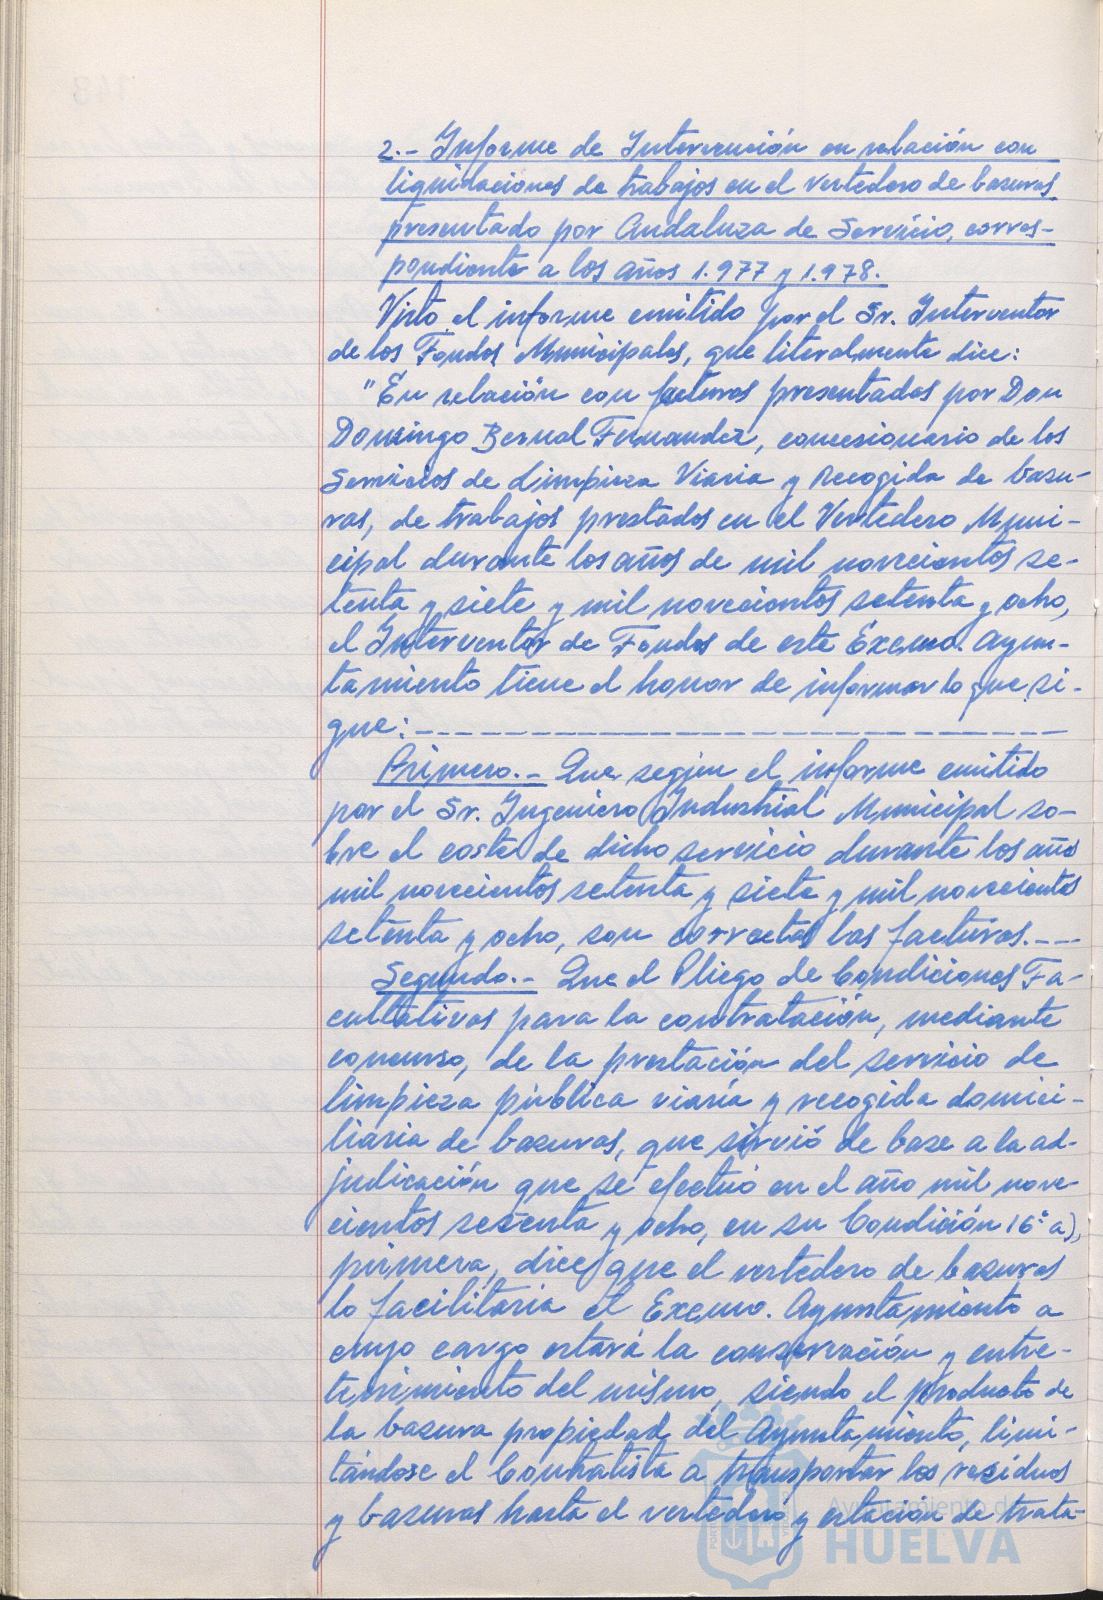 2.- Informe de Intervención en relación con
liquidaciones de trabajos en el vertedero de basuras
presentado por Andaluza de Servicio, corres-
pondiente a los años 1.977 y 1.978.
Visto el informe emitido por el Sr. Interventor
de los Fondos Municipales, que literalmente dice:
"En relación con facturas presentadas por Don
Domingo Bernal Fernandez, concesionario de los
Servicios de Limpieza Viaria y Recogida de basu-
ras, de trabajos prestados en el Vertedero Muni-
cipal durante los años de mil novecientos se-
tenta y siete y mil novecientos setenta y ocho,
el Interventor de Fondos de este Excmo. Ayun-
tamiento tiene el honor de informar lo que si-
gue:
Primero.- Que segun el informe emitido
por el Sr. Ingeniero Industrial Municipal so-
bre el coste de dicho servicio durante los años
mil novecientos setenta y siete y mil novecientos
setenta y ocho, son correctas las facturas.---
Segundo.- Que el Pliego de Condiciones Fa-
cultativas para la contratación, mediante
concurso, de la prestación del servicio de
limpieza pública viaria y recogida domici-
liaria de basuras, que sirvió de base a la ad-
judicación que se efectuó en el año mil nove-
cientos sesenta y ocho, en su Condición 16ª a),
primera, dice que el vertedero de basuras
lo facilitaria el Excmo. Ayuntamiento a
cuyo cargo estará la conservación y entre-
tenimiento del mismo, siendo el producto de
la basura propiedad del Ayuntamiento, limi-
tándose el Contratista a transportar los residuos
y basuras hasta el vertedero y estación de trata-
Ayuntamiento de
HUELVA